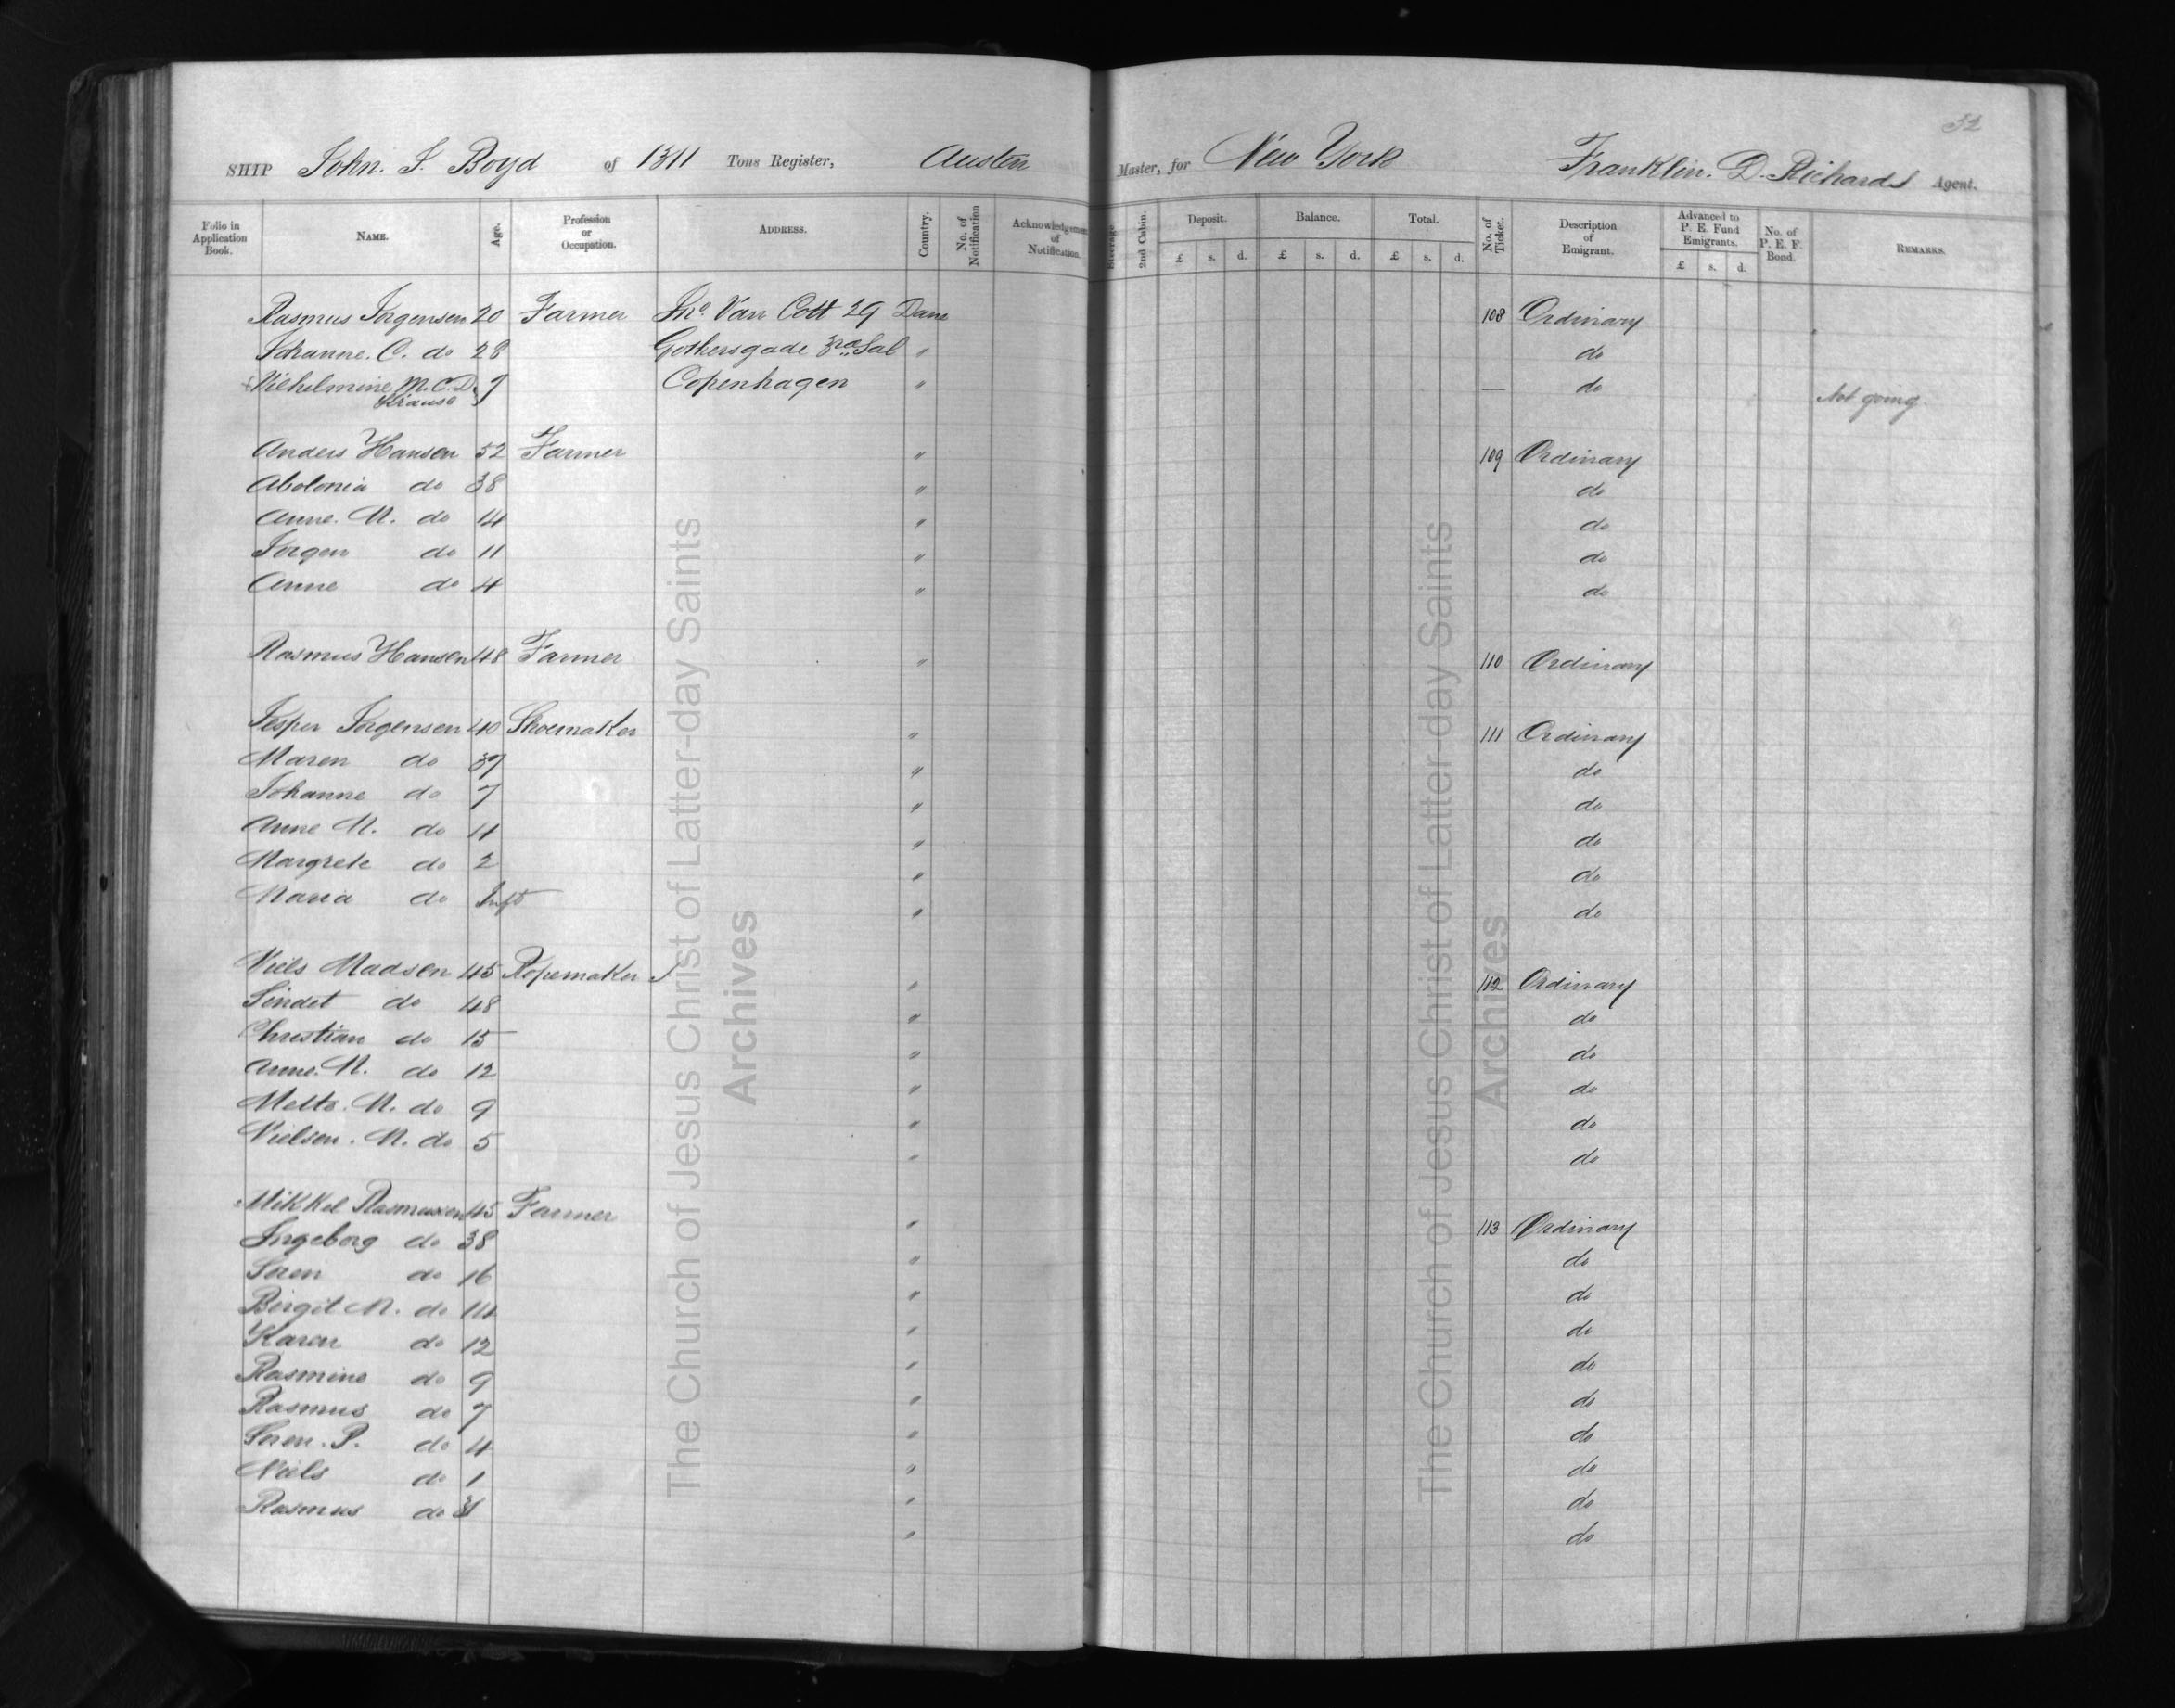 32
SHIP John. J. Boyd of 1311 Tons Register, Austin Master, for New York Franklin. D. Richards Agent.
Folio in Application Book. NAME. Age. Profession or Occupation. ADDRESS. Country. No. of Notification Acknowledgement of Notification. Steerage. 2nd Cabin. Deposit. £ s. d. Balance. £ s. d. Total. £ s. d. No. of Ticket. Description of Emigrant. Advanced to P. E. Fund Emigrants. £ s. d. No. of P. E. F. Bond. REMARKS.
Rasmus Jorgensen 20 Farmer Jno. Van Cott 29 Dane 108 Ordinary
Johanne. C. do 28 Gothersgade 3rd Sal " do
Vilhelmine M. C. D. Krause 7 Copenhagen " — do Not going.
Anders Hansen 52 Farmer " 109 Ordinary
Abolonia do 38 " do
Anne. M. do 14 " do
Jorgen do 11 " do
Anne do 4 " do
Rasmus Hansen 48 Farmer " 110 Ordinary
Jesper Jorgensen 40 Shoemaker " 111 Ordinary
Maren do 37 " do
Johanne do 7 " do
Anne M. do 4 " do
Margrete do 2 " do
Maria do Inft " do
Niels Madsen 45 Ropemaker " 112 Ordinary
Sindet do 48 " do
Christian do 15 " do
Anne. M. do 12 " do
Mette. M. do 9 " do
Nielsen. M. do 5 " do
Mikkel Rasmussen 45 Farmer " 113 Ordinary
Ingeborg do 38 " do
Soren do 16 " do
Birgit M. do 14 " do
Karen do 12 " do
Rasmine do 9 " do
Rasmus do 7 " do
Soren. P. do 4 " do
Niels do 1 " do
Rasmus do " do
The Church of Jesus Christ of Latter-day Saints
Archives
The Church of Jesus Christ of Latter-day Saints
Archives